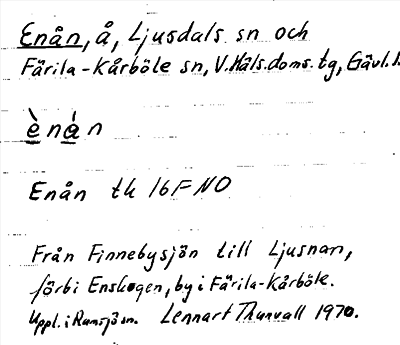 Enån, å, Ljusdals sn och
Färila-Kårböle sn, V. Häls. doms. tg, Gävl. l.
ènán
Enån tk 16F NO
Från Finnebysjön till Ljusnan,
förbi Enskogen, by i Färila-Kårböle.
Uppl. i Ramsjö sn. Lennart Thunvall 1970.